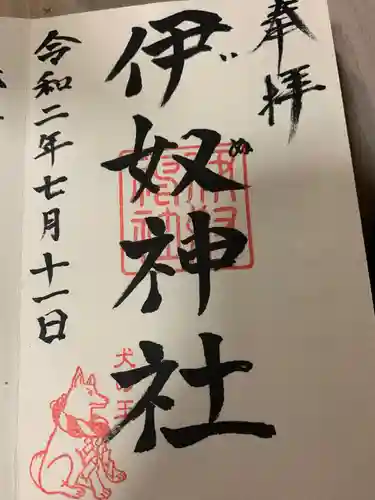 奉拝
伊奴神社
い
ぬ
犬の王
令和二年七月十一日